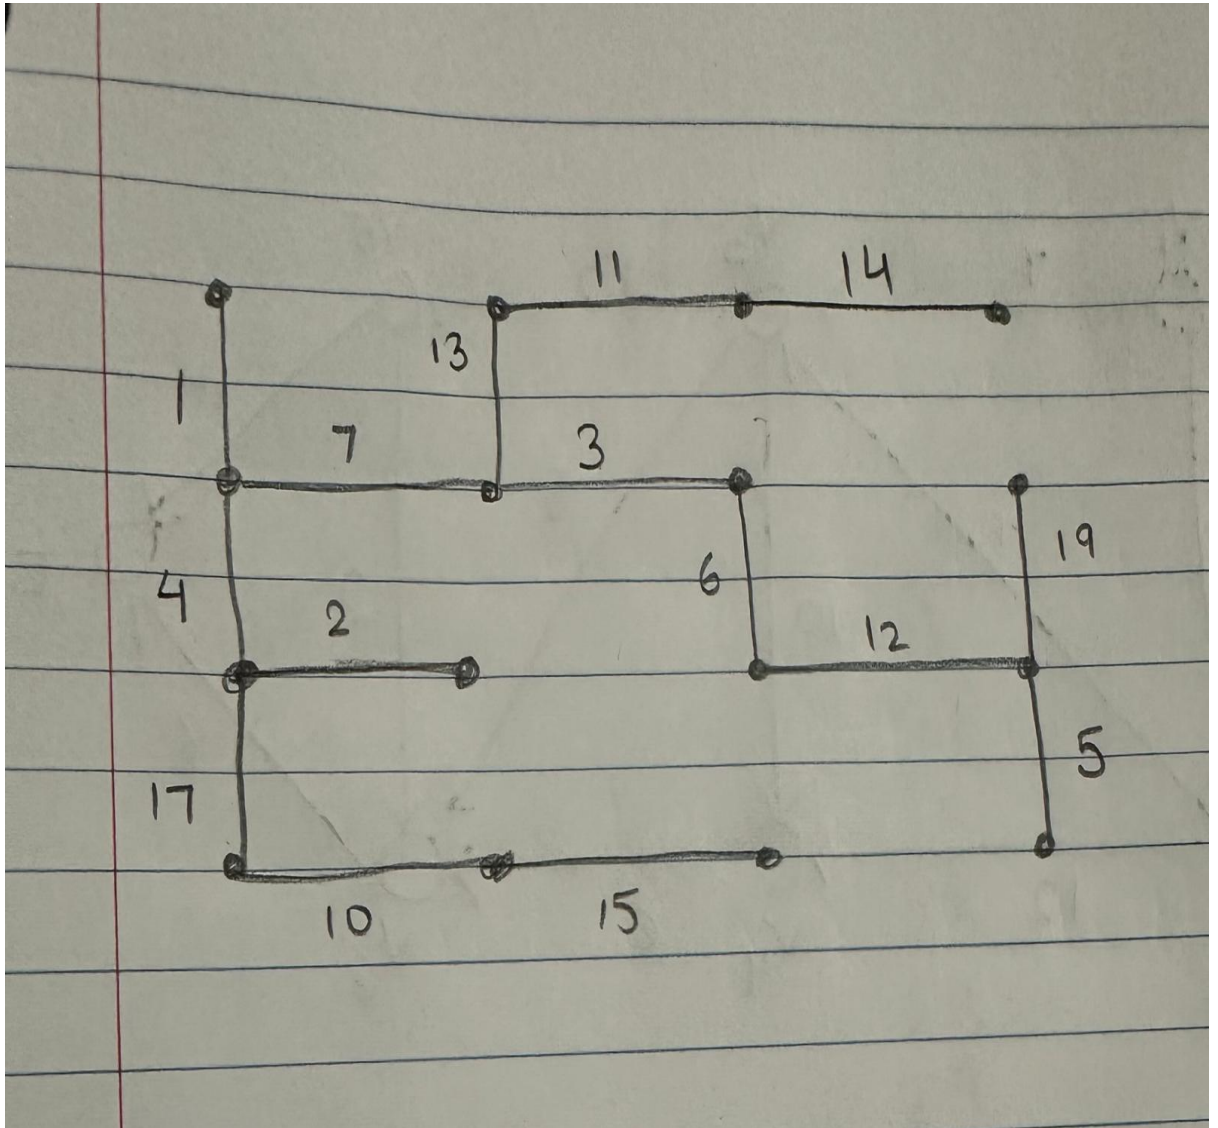 11 14
13
1
7 3
19
6
4
2 12
5
17
10 15